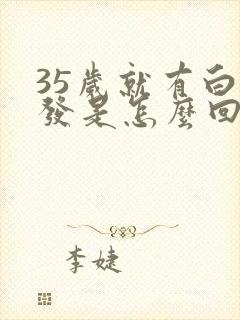 35歲就有白
發是怎麼回
李婕